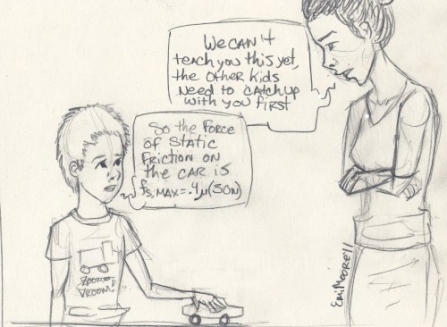 We can't
teach you this yet,
the other kids
need to catch up
with you first
So the force
of static
friction on
the car is
fs,max=.4μ(50N)
Zoom
Vroom!
EmiMoore11